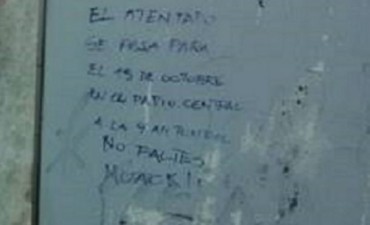 EL ATENTATO
SE PASA PARA
EL 19 DE OCTUBRE
EN EL PATIO CENTRAL
A LA 9
NO FALTES